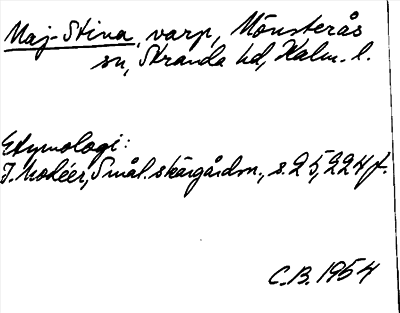 Maj-Stina, varp, Mönsterås
sn, Stranda hd, Kalm. l.
Etymologi:
I. Modéer, Smål. skärgårdsn., s. 25, 224 f.
C.B. 1954